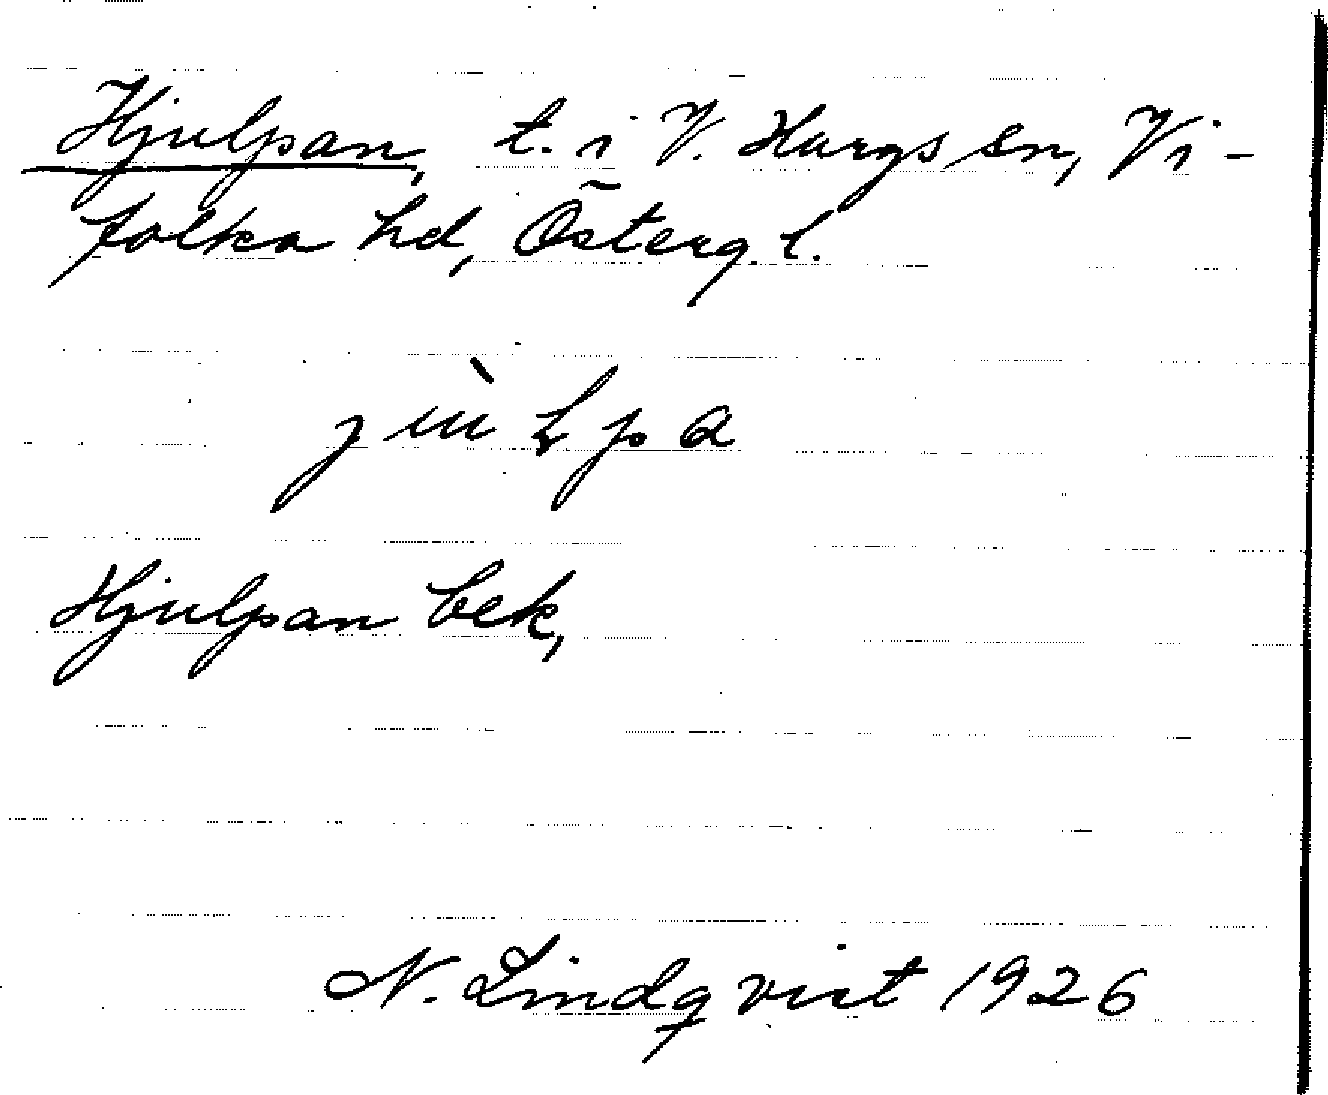 Hjulpan, t. i V. Hargs sn, Vi-
folka hd, Österg. l.
jùlpa
Hjulpan bek,
N. Lindqvist 1926